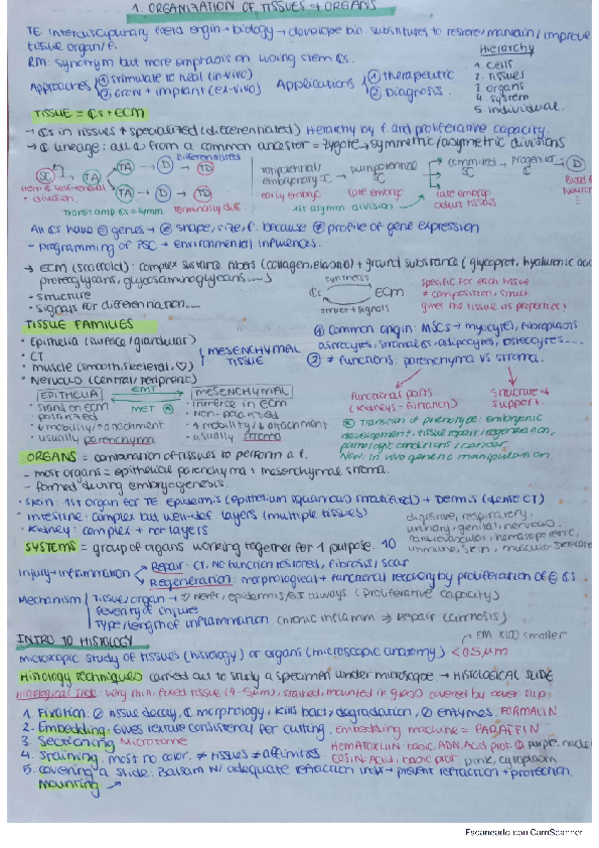 1. ORGANIZATION OF TISSUES & ORGANS
TE interdisciplinary field engin + biology → develope bio. substitutes to restore/maintain/improve
tissue organ/f.
RM: synonym but more emphasis on using stem Cs.
Hierarchy
1. cells
2. tissues
3. organs
4. system
5. individual.
Approaches
① stimulate to heal (in vivo)
② Grow + implant (ex-vivo)
Applications
① therapeutic
② Diagnosis.
TISSUE = Cs + ECM
→ Cs in tissues ≠ specialized (differentiated) Hierarchy by f. and proliferative capacity.
→ C lineage: all C from a common ancestor = zygote → symmetric/asymetric divisions
SC
TA
D
TD
Differentiated
TA
D
TD
stem Cs self-renewal
+ division.
Transit amp Cs = symm.
Terminally diff
totipotential/
embryonary SC
→ pluripotential
SC
→ commited
SC
→ progenitor
C
early embryo
late embryo
late embryo
adult tissues
1st asymm division
All Cs have = genes → ≠ shape, size, f. because ≠ profile of gene expression
- programming of PSC + environmental influences.
→ ECM (scaffold): complex sustance fibers (collagen, elastic) + ground substance (glycoprot, hyaluronic acid
proteoglycans, glycosaminoglycans...)
- structure
- signals for differentiation...
synthesis
Cs
ECM
struct + signals
specific for each tissue
≠ composition, struct
gives the tissue its properties
TISSUE FAMILIES
• Epithelia (surface/glandular)
• CT
• muscle (smooth, skeletal, ♡)
• Nervous (central/peripheric)
MESENCHYMAL
TISSUE
① Common origin: MSCs → myocytes, fibroblasts
astrocytes, stromal Cs, adipocytes, osteocytes....
② ≠ functions: parenchyma vs stroma.
Functional parts
(kidneys - filtration)
Structure +
support.
EPITHELIA
EMT
MET
MESENCHYMAL
• stand on ECM
• polarized
• ↓ mobility/↑ attachment
• usually parenchyma
• Inmerse in ECM
• Non-polarized
• ↑ mobility/↓ attachment
• usually stroma
Transition of phenotype: embryonic
development, tissue repair/regeneration,
pathologic conditions/cancer
Now: in vivo genetic manipulation
ORGANS = combination of tissues to perform a f.
- most organs = epithelial parenchyma + mesenchymal stroma.
- formed during embryogenesis.
• Skin: 1st organ for TE Epidermis (epithelium squamous stratified) + Dermis (dense CT)
• Intestine: complex but well-def layers (multiple tissues)
• Kidney: complex + not layers
SYSTEMS = group of organs working together for 1 purpose. 10
digestive, respiratory,
urinary, genital, nervous,
cardiovascular, hematopoietic,
immune, skin, musculo-skeletal
Injury + inflammation
Repair: CT. no function restored, fibrosis/scar
Regeneration: morphological + functional recovery by proliferation of = Cs.
Mechanism
Tissue/organ → ♡ never, epidermis/BT always (proliferative capacity)
Severity of injure
Type/length of inflammation chronic inflamm ⇒ Repair (cirrhosis)
INTRO TO HISTOLOGY
EM x100 smaller
microscopic study of tissues (histology) or organs (microscopic anatomy) < 0.5μm
Histology techniques carried out to study a specimen under microscope → HISTOLOGICAL SLIDE
Histological slide: very thin, fixed tissue (4-5μm), stained, mounted in glass covered by cover slip.
1. Fixation: tissue decay, C morphology, kills bact, degradation, enzymes. FORMALIN
2. Embedding: Gives texture consistency for cutting. Embedding machine = PARAFFIN
3. Sectioning Microtome
4. Staining: most no color. ≠ tissues ≠ affinities
HEMATOXILIN: basic, ADN. Acid prot. purple, nuclei
EOSIN: Acid, basic prot. pink, cytoplasm
5. Covering a slide: Balsam w/ adequate refraction index → prevent refraction + protection.
Mounting
Escaneado con CamScanner